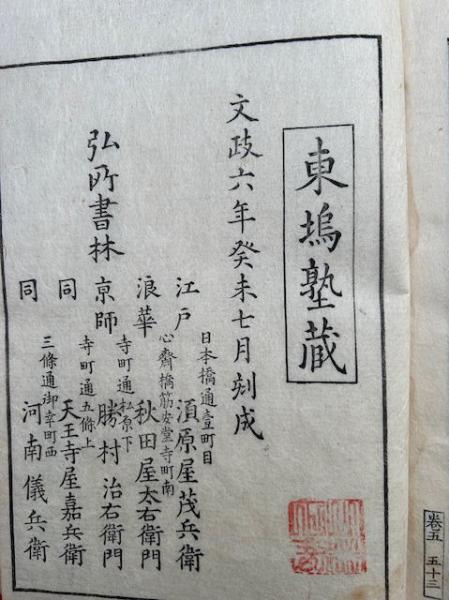 東塢塾藏
文政六年癸未七月刻成
弘所書林
江戸 日本橋通壹町目 須原屋茂兵衛
浪華 心齋橋筋安堂寺町南 秋田屋太右衛門
京師 寺町通松原下 勝村治右衛門
同 寺町通五條上 天王寺屋嘉兵衛
同 三條通御幸町西 河南儀兵衛
卷五 五十三